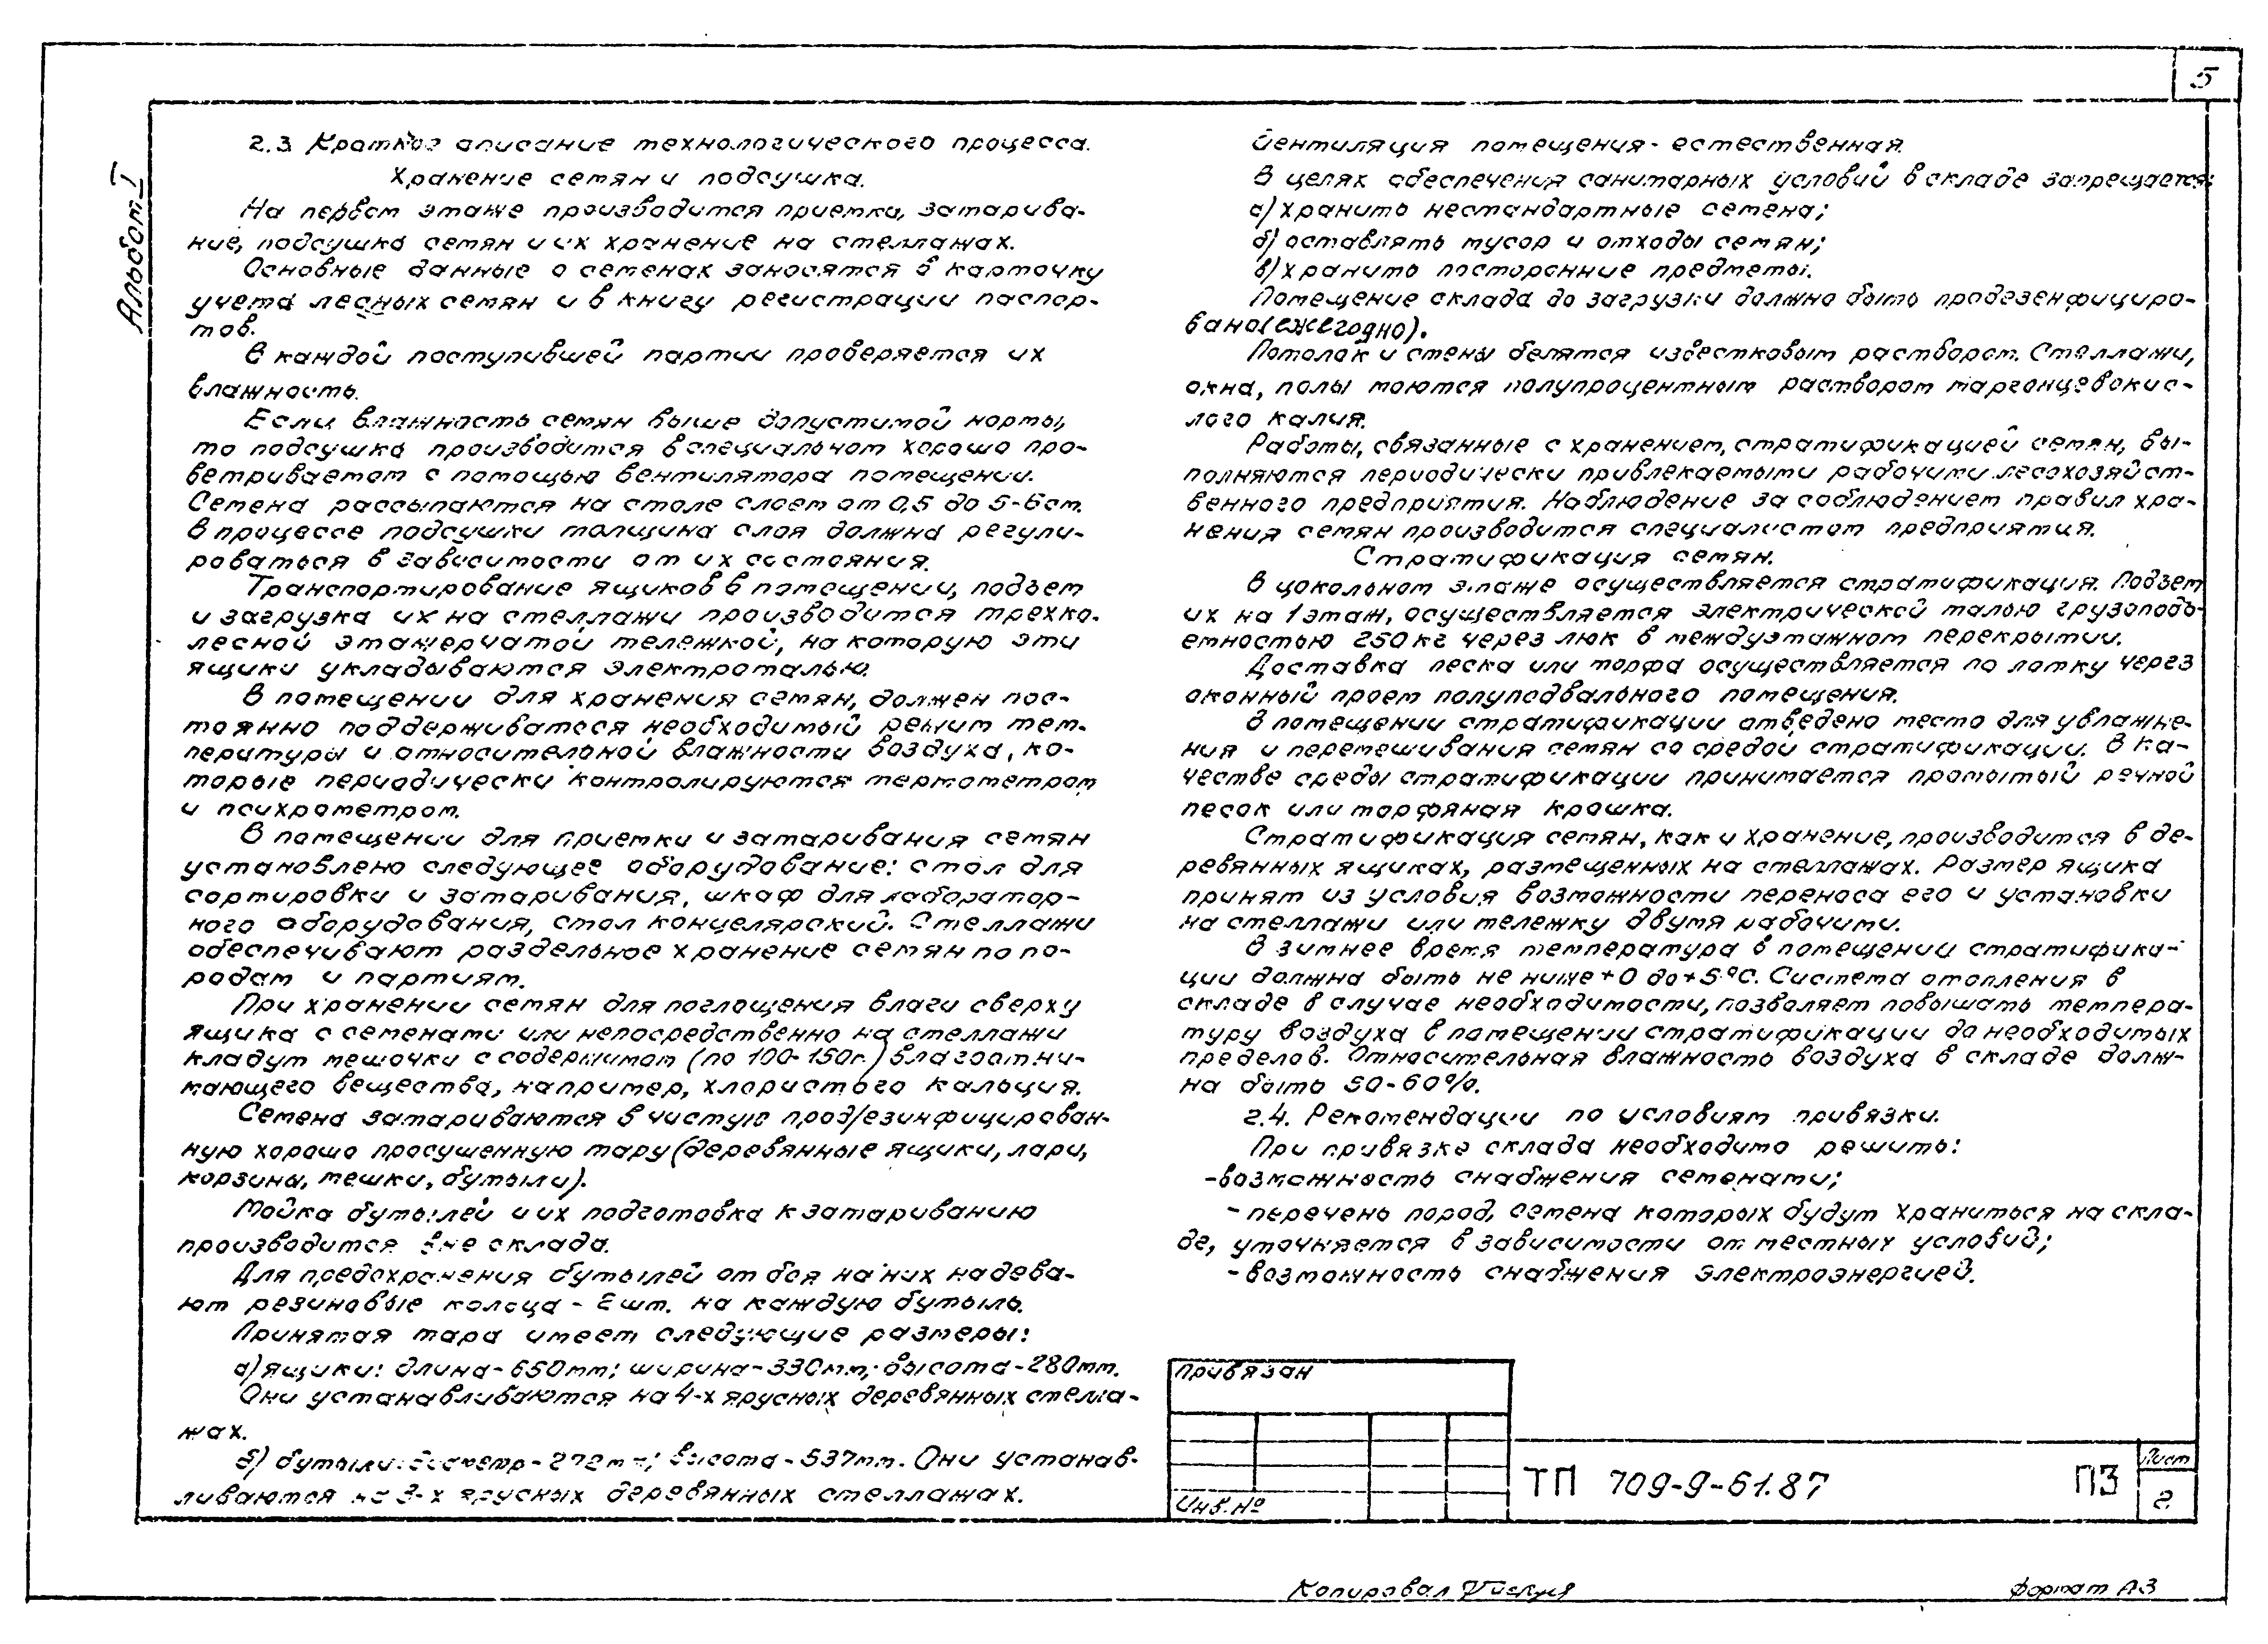 5
Альбом I
2.3 Краткое описание технологического процесса.
Хранение семян и подсушка.
На первом этаже производится приемка, затарива-
ние, подсушка семян и их хранение на стеллажах.
Основные данные о семенах заносятся в карточку
учета лесных семян и в книгу регистрации паспор-
тов.
В каждой поступившей партии проверяется их
влажность.
Если влажность семян выше допустимой нормы,
то подсушка производится в специальном хорошо про-
ветриваемом с помощью вентилятора помещении.
Семена рассыпаются на столе слоем от 0,5 до 5-6см.
В процессе подсушки толщина слоя должна регули-
роваться в зависимости от их состояния.
Транспортирование ящиков в помещении, подъем
и загрузка их на стеллажи производится трехко-
лесной этажерчатой тележкой, на которую эти
ящики укладываются электроталью.
В помещении для хранения семян, должен пос-
тоянно поддерживаться необходимый режим тем-
пературы и относительной влажности воздуха, ко-
торые периодически контролируются термометром
и психрометром.
В помещении для приемки и затаривания семян
установлено следующее оборудование: стол для
сортировки и затаривания, шкаф для лаборатор-
ного оборудования, стол концелярский. Стеллажи
обеспечивают раздельное хранение семян по по-
родам и партиям.
При хранении семян для поглощения влаги сверху
ящика с семенами или непосредственно на стеллажи
кладут мешочки с содержимом (по 100-150г.) влагоотни-
мающего вещества, например, хлористого кальция.
Семена затариваются в чистую продезинфицирован-
ную хорошо просушенную тару (деревянные ящики, лари,
корзины, мешки, бутыли).
Мойка бутылей и их подготовка к затариванию
производится вне склада.
Для предохранения бутылей от боя на них надева-
ют резиновые кольца - 2 шт. на каждую бутыль.
Принятая тара имеет следующие размеры:
а) ящики: длина-650мм; ширина-330мм; высота-280мм.
Они устанавливаются на 4-х ярусных деревянных стелла-
жах.
б) бутыли: диаметр-272мм; высота-537мм. Они устанав-
ливаются на 3-х ярусных деревянных стеллажах.
Вентиляция помещения - естественная.
В целях обеспечения санитарных условий в складе запрещается:
а) хранить нестандартные семена;
б) оставлять мусор и отходы семян;
в) хранить посторонние предметы.
Помещение склада до загрузки должно быть продезенфициро-
вано (ежегодно).
Потолок и стены белятся известковым раствором. Стеллажи,
окна, полы моются полупроцентным раствором марганцевокис-
лого калия.
Работы, связанные с хранением, стратификацией семян, вы-
полняются периодически привлекаемыми рабочими лесохозяйст-
венного предприятия. Наблюдение за соблюдением правил хра-
нения семян производится специалистом предприятия.
Стратификация семян.
В цокольном этаже осуществляется стратификация. Подъем
их на 1 этаж, осуществляется электрической талью грузоподъ-
емностью 250 кг через люк в междуэтажном перекрытии.
Доставка песка или торфа осуществляется по лотку через
оконный проем полуподвального помещения.
В помещении стратификации отведено место для увлажне-
ния и перемешивания семян со средой стратификации. В ка-
честве среды стратификации принимается промытый речной
песок или торфяная крошка.
Стратификация семян, как и хранение, производится в де-
ревянных ящиках, размещенных на стеллажах. Размер ящика
принят из условия возможности переноса его и установки
на стеллажи или тележку двумя рабочими.
В зимнее время температура в помещении стратифика-
ции должна быть не ниже +0 до +5°С. Система отопления в
складе в случае необходимости, позволяет повышать темпера-
туру воздуха в помещении стратификации до необходимых
пределов. Относительная влажность воздуха в складе долж-
на быть 50-60%.
2.4. Рекомендации по условиям привязки.
При привязке склада необходимо решить:
-возможность снабжения семенами;
- перечень пород, семена которых будут храниться на скла-
де, уточняется в зависимости от местных условий;
-возможность снабжения электроэнергией.
Привязан
Инв. №
ТП 709-9-61.87
ПЗ
Лист
2.
Копировал
Формат А3